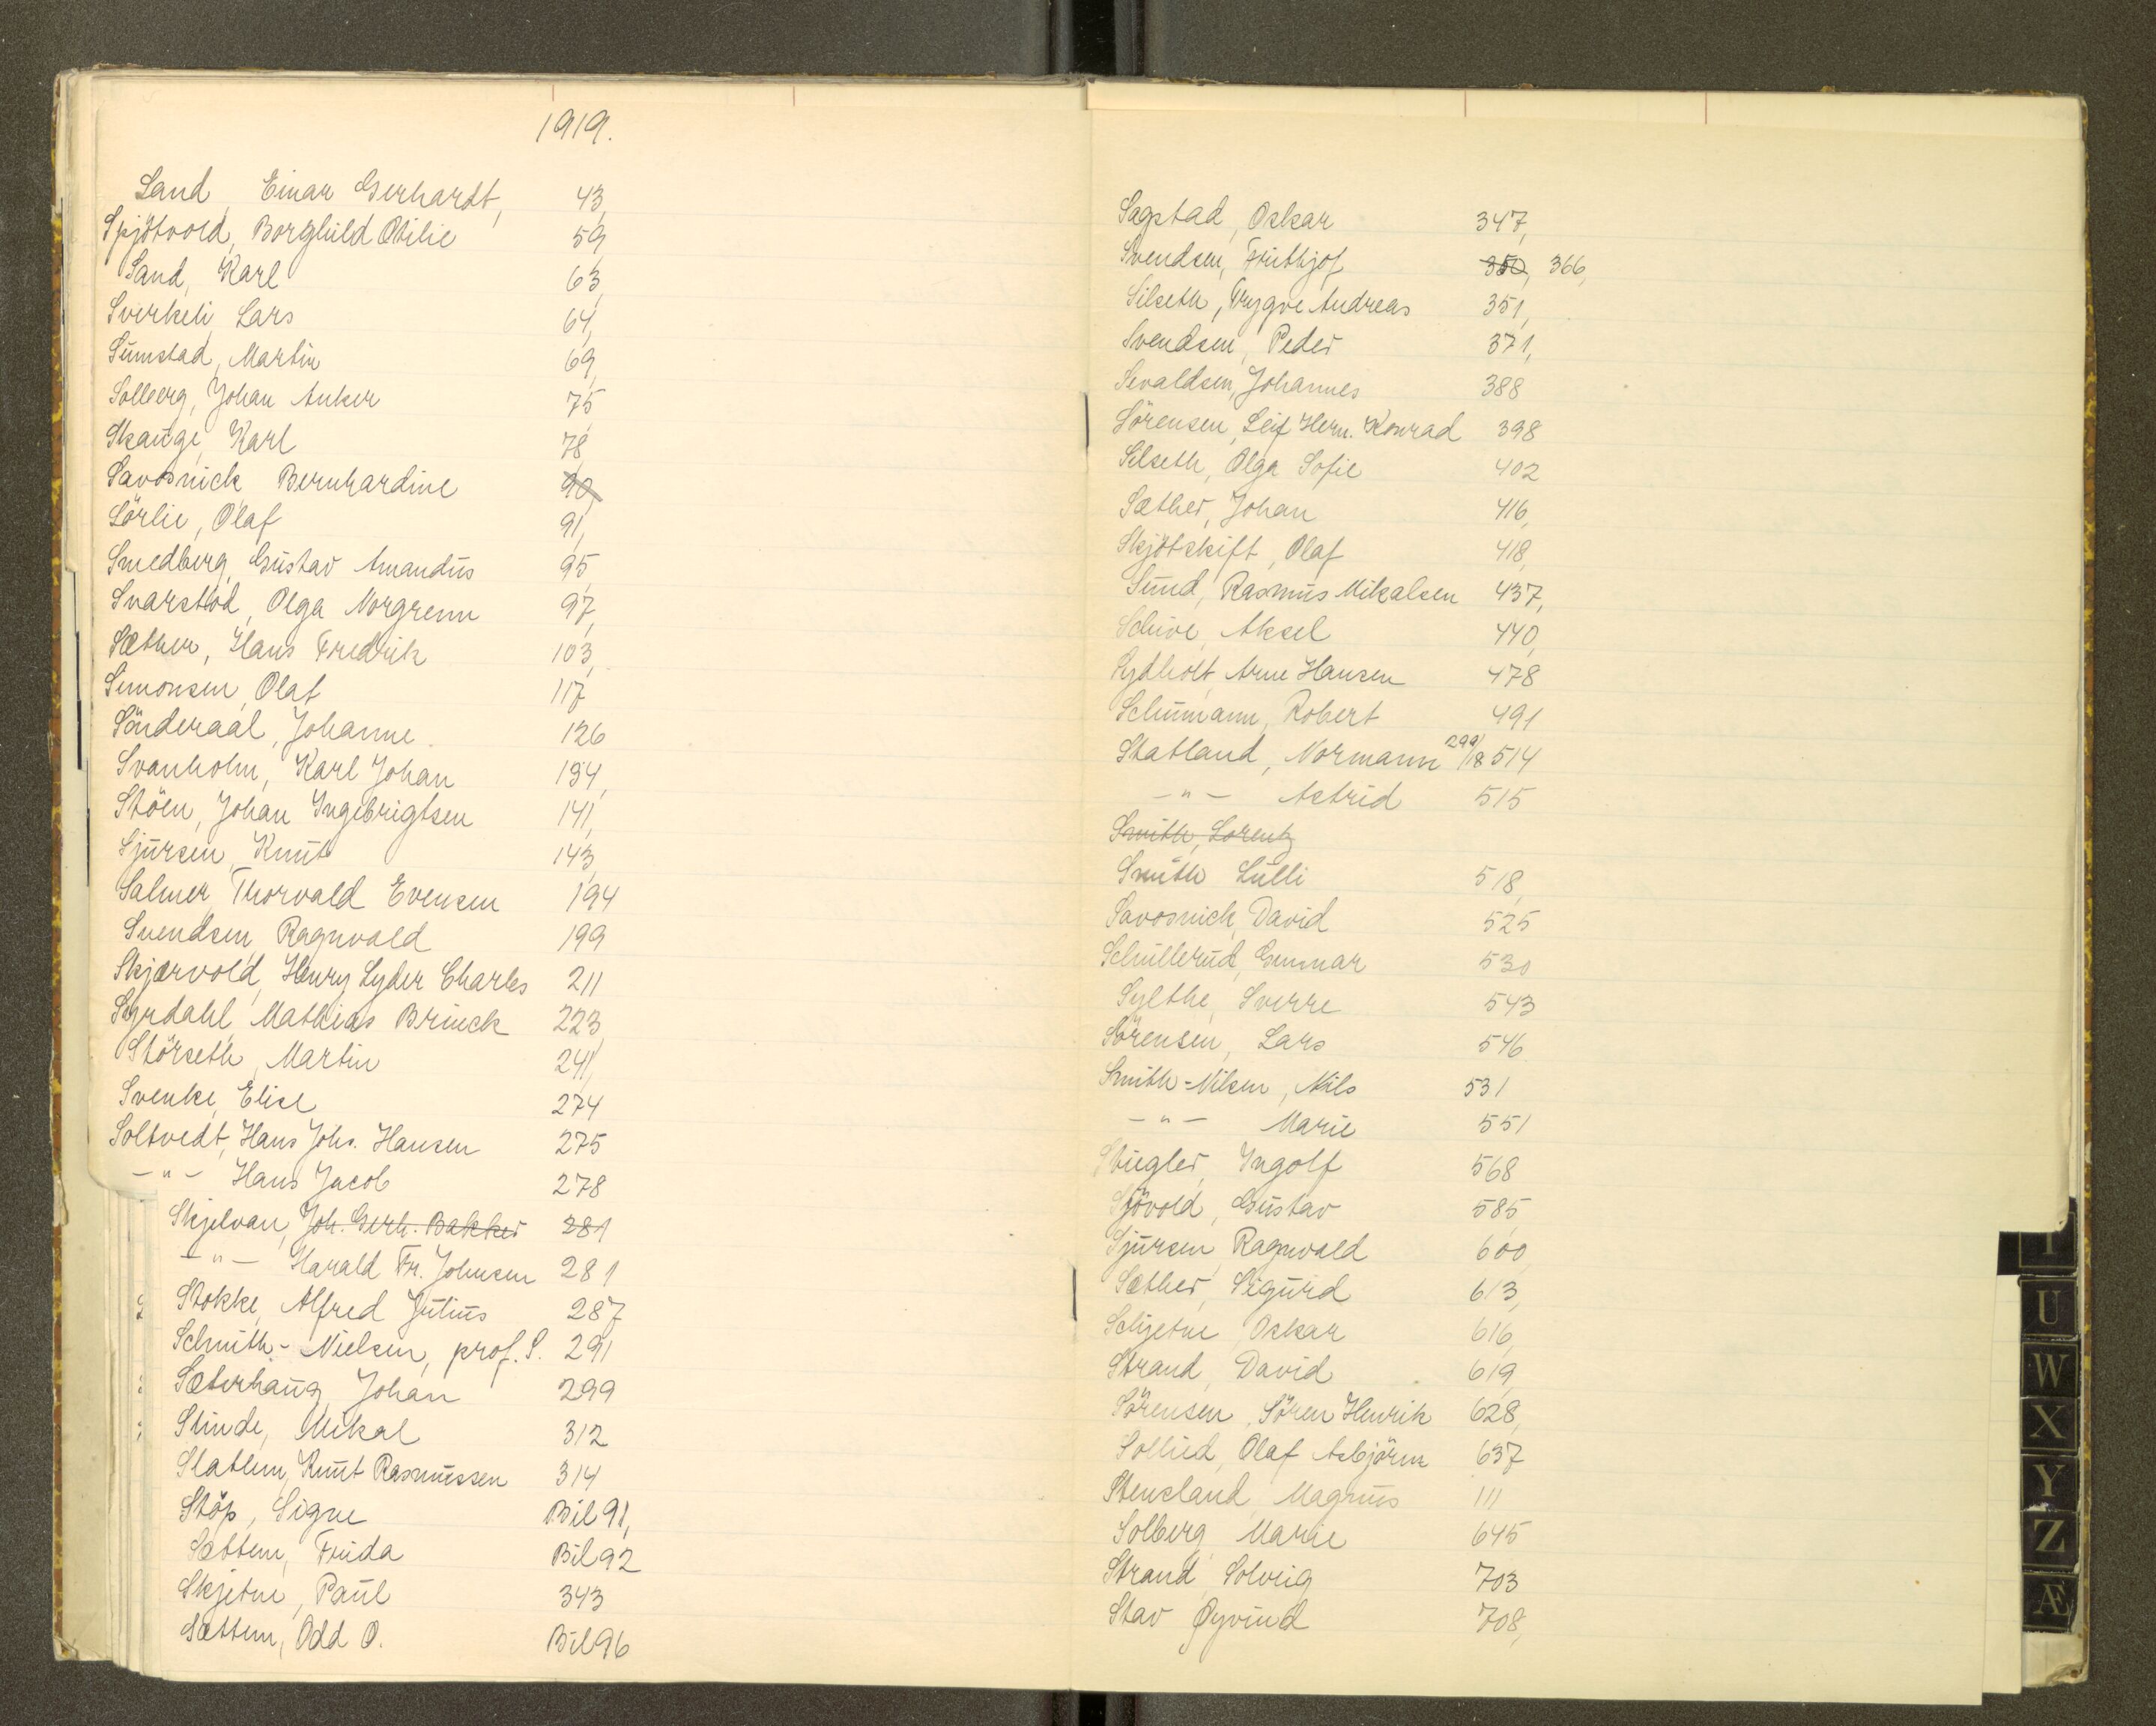 1919.
Sand, Einar Gerhardt, 43,
Spjötvold, Borghild Otilie 59,
Sand, Karl 63,
Sverkeli, Lars 64,
Sumstad, Martin 69,
Solberg, Johan Anker 75,
Skauge, Karl 78,
Savosnick, Bernhardine 90,
Sörlie, Olaf 91,
Smedberg, Gustav Amandus 95,
Svarstad, Olga Norgrenn 97,
Sæther, Hans Fredrik 103,
Simonsen, Olaf 117,
Sönderaal, Johanne 126
Svanholm, Karl Johan 134,
Stöen, Johan Ingebrigtsen 141,
Sjursen, Knut 143,
Salmer, Thorvald Evensen 194
Svendsen, Ragnvald 199
Skjærvold, Henry Lyder Charles 211
Syrdahl, Mathias Brinck 223,
Störseth, Martin 241,
Svenke, Elise 274
Soltvedt, Hans Johs. Hansen 275
-"- Hans Jacob 278
Skjelvan, Joh. Gerh. Bakker 281
-"- Harald Fr. Johnsen 281
Stokke, Alfred Julius 287
Schmith-Nielsen, prof. S. 291
Sæterhaug, Johan 299
Stinde, Mikal 312
Slatlem, Knut Rasmussen 314
Stöp, Signe Bil 91,
Sættem, Frida Bil 92
Skjetne, Paul 343
Sættem, Odd O. Bil 96
Sagstad, Oskar 347,
Svendsen, Frithjof 350, 366,
Silseth, Trygve Andreas 351,
Svendsen, Peder 371,
Sevaldsen, Johannes 388
Sörensen, Leif Herm. Konrad 398
Silseth, Olga Sofie 402
Sæther, Johan 416,
Skjötskift, Olaf 418,
Sund, Rasmus Mikalsen 437,
Schive, Aksel 440,
Sydholt, Arne Hansen 478
Schumann, Robert 491
Statland, Normann 299/18 514
-"- Astrid 515
Smith, Lorentz
Smith Lulli 518,
Savosnick, David 525
Schullerud, Gunnar 530
Sylthe, Sverre 543
Sörensen, Lars 546
Smith-Nilsen, Nils 531
-"- Marie 551
Stugler, Ingolf 568
Sjövold, Gustav 585,
Sjursen, Ragnvald 600,
Sæther, Sigurd 613,
Schjetne, Oskar 616,
Strand, David 619,
Sörensen, Sören Henrik 628,
Sollied, Olaf Asbjörn 637
Stensland, Magnus 111
Solberg, Marie 645
Strand, Solveig 703
Stav Øyvind 708,
U
W
X
Y
Z
Æ